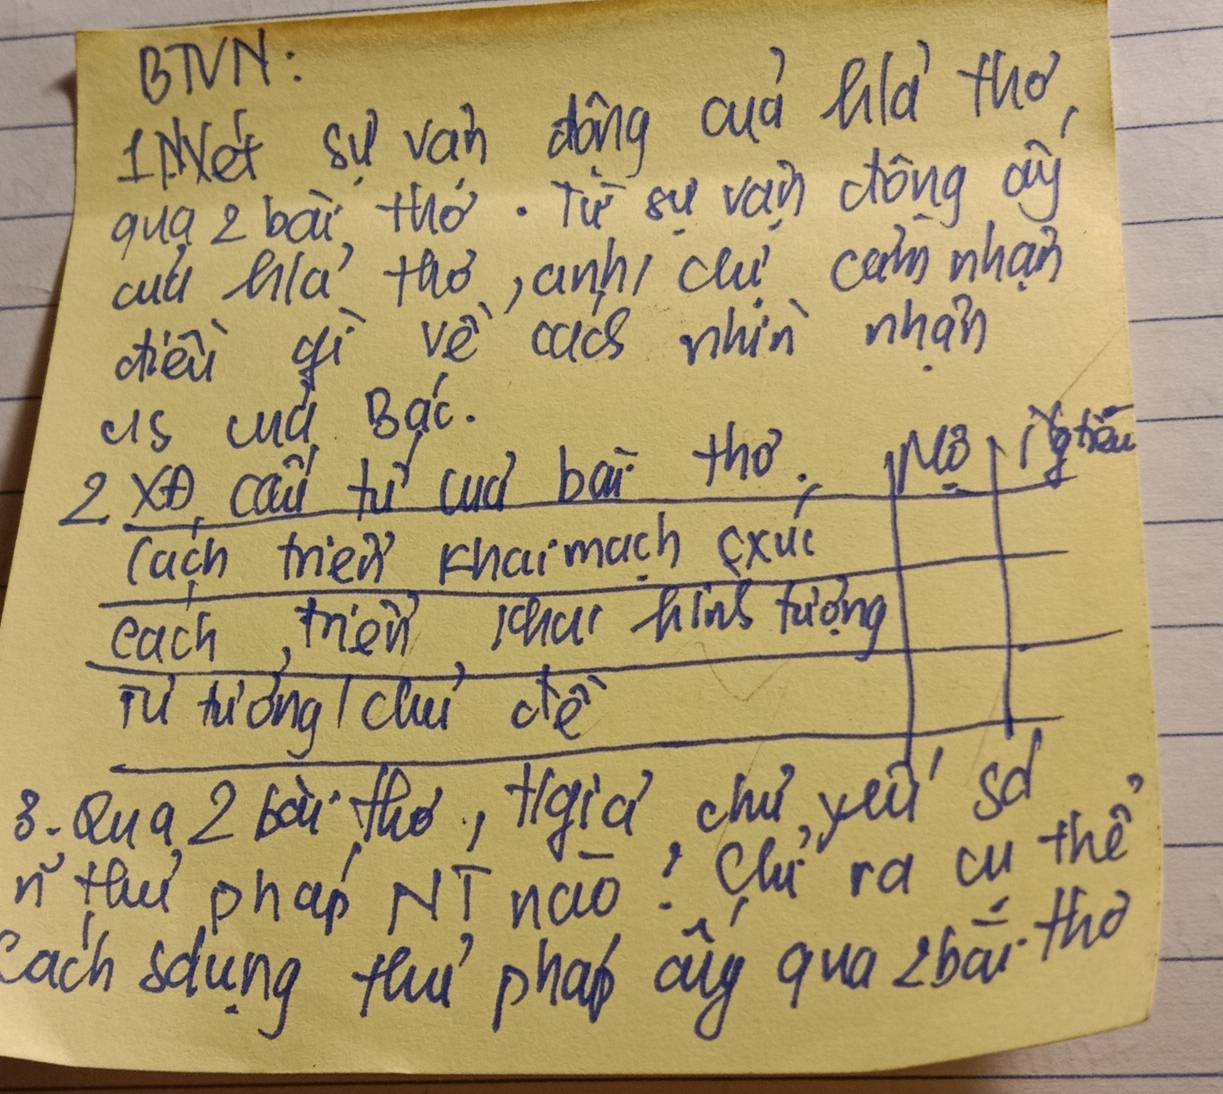 BTVN:
1, Nxét sự vận động của h/ả thơ
qua 2 bài thơ. Từ sự vận động ấy
của h/ả thơ, anh/ chị cảm nhận
điều gì về cách nhìn nhận
c/s của Bác.
2. XĐ cấu tứ của bài thơ. Mộ Ng tiêu
Cách triển khai mạch cxúc
Cách triển khai hình tượng
Tư tưởng/ chủ đề
3. Qua 2 bài thơ, t/giả chủ yếu sd
n~ thủ pháp NT nào? Chỉ ra cụ thể
cách sdụng thủ pháp ấy qua 2 bài thơ